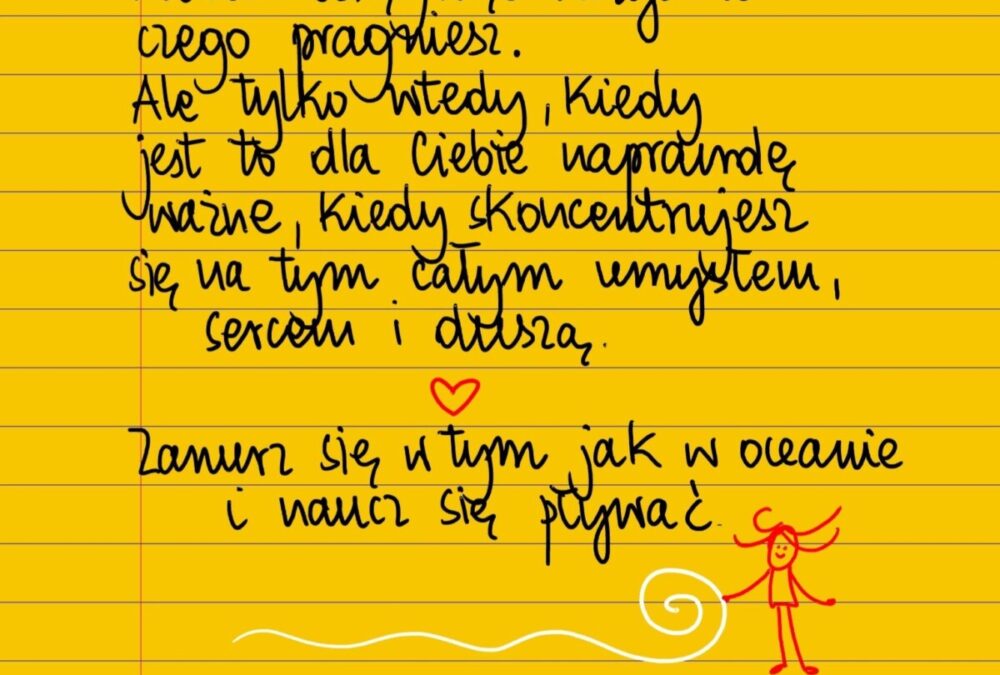 czego pragniesz.
Ale tylko wtedy, kiedy
jest to dla Ciebie naprawdę
ważne, kiedy skoncentrujesz
się na tym całym umysłem,
sercem i duszą.
Zanurz się w tym jak w oceanie
i naucz się pływać.